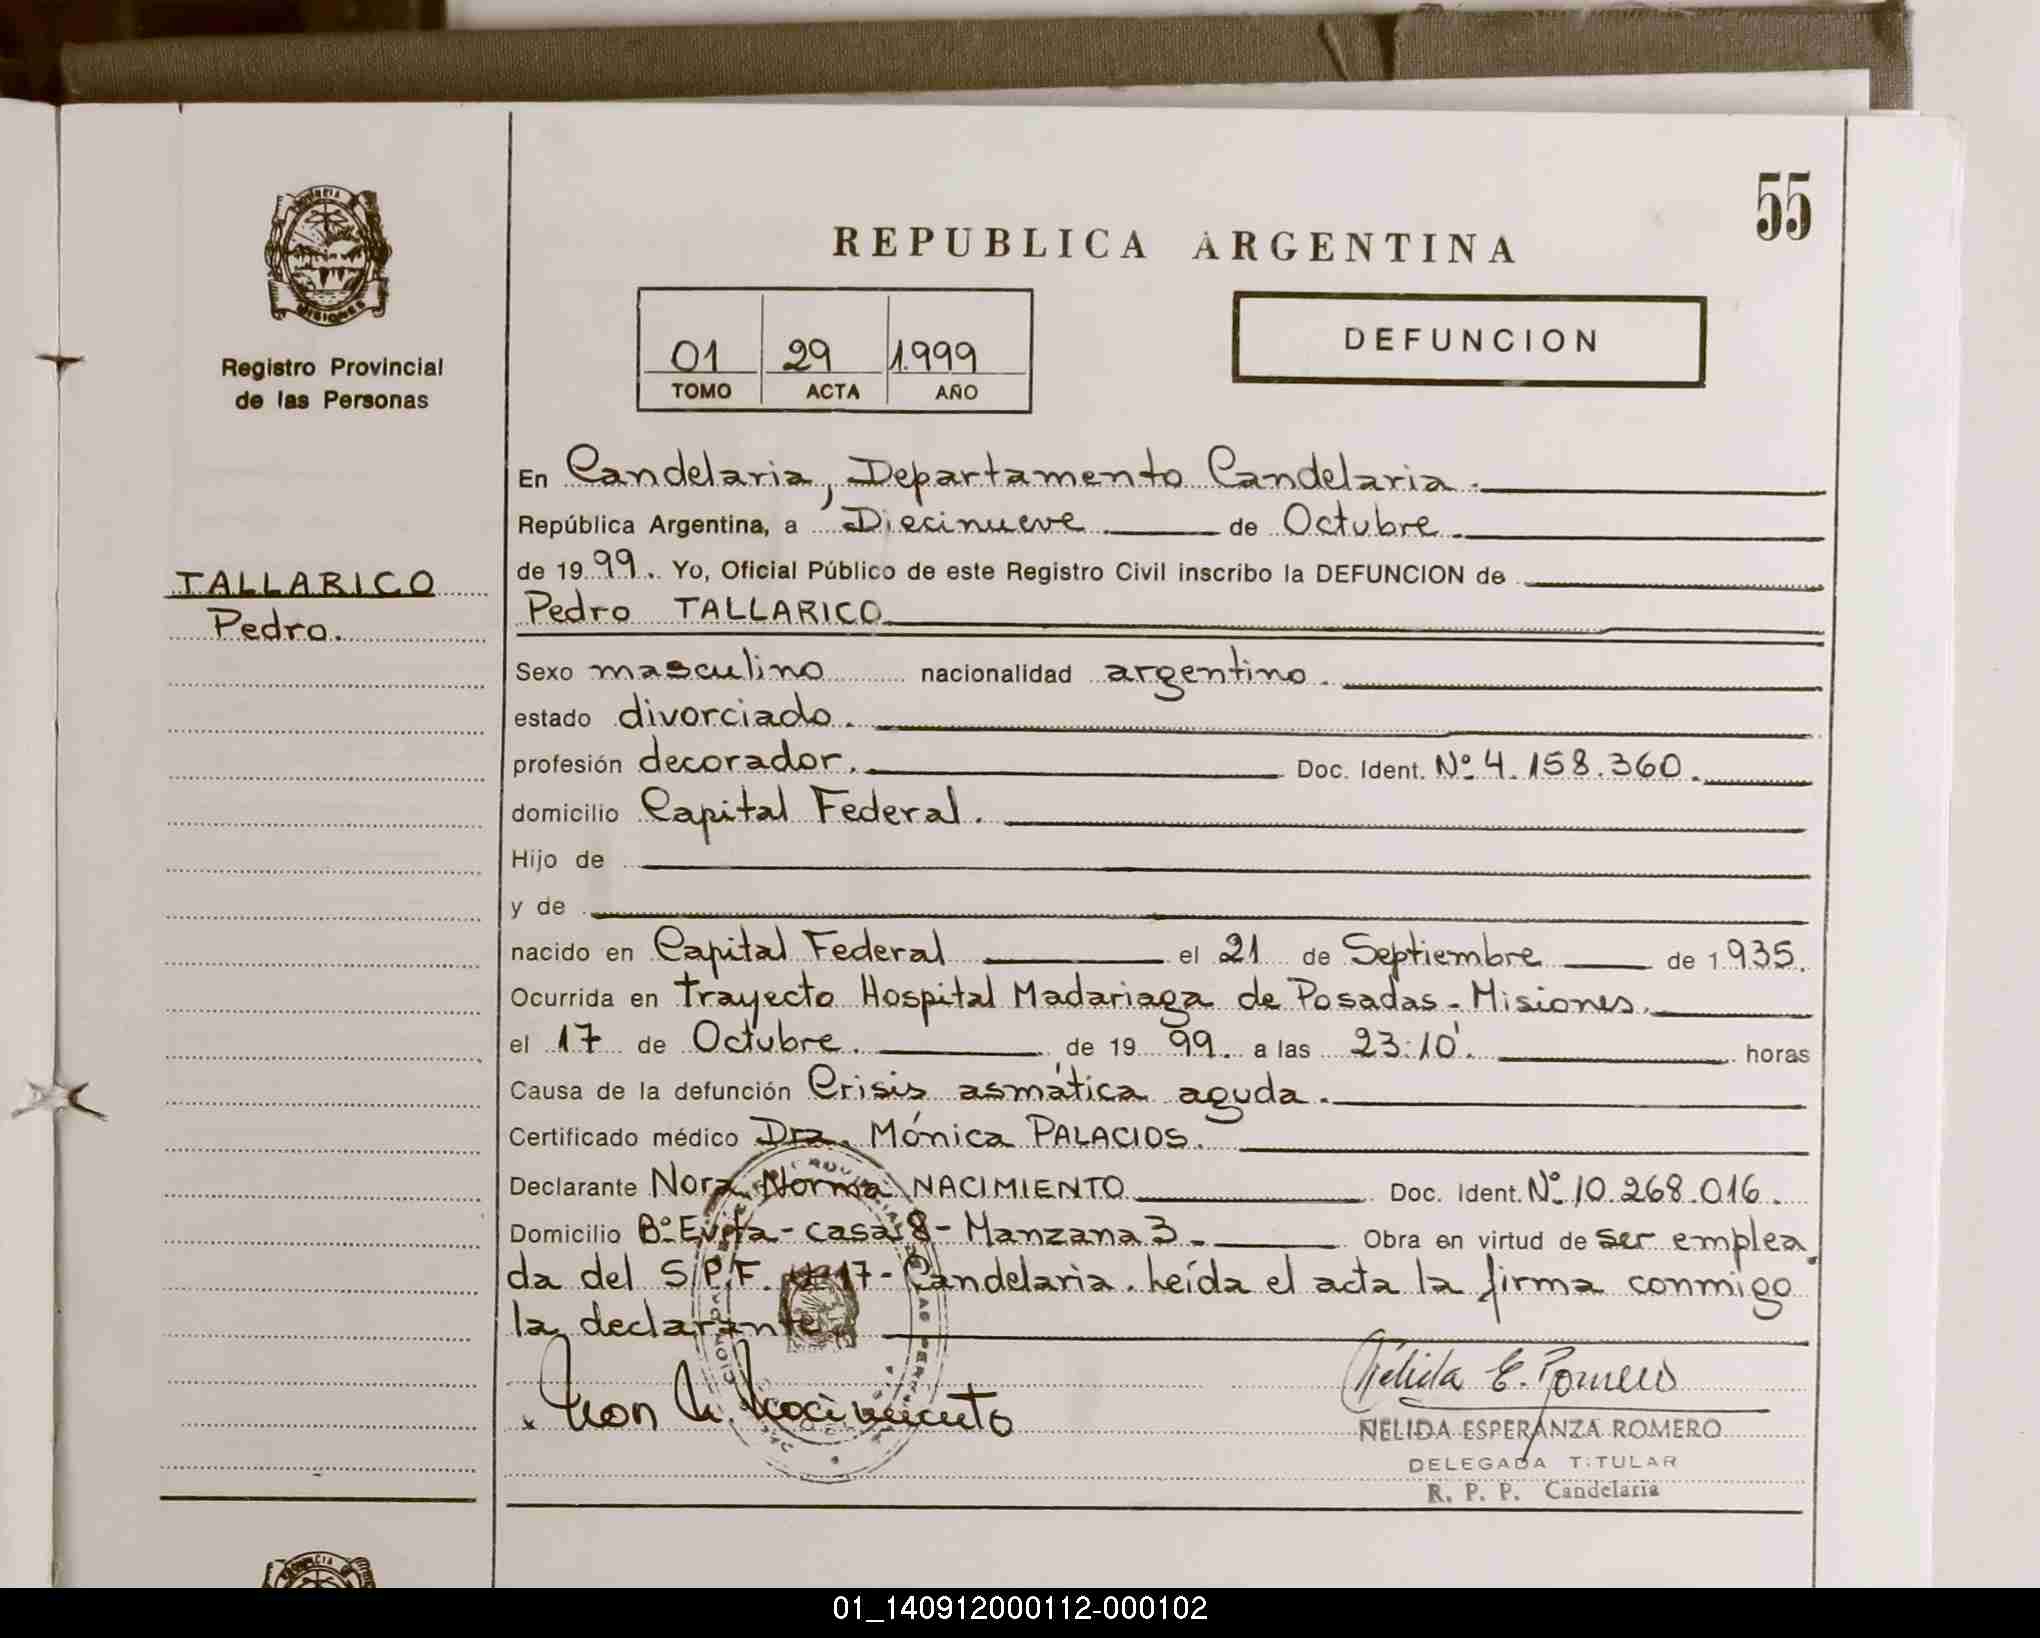 55
REPUBLICA ARGENTINA
MISIONES
Registro Provincial
de las Personas
01 29 1.999
TOMO ACTA AÑO
DEFUNCION
TALLARICO
Pedro.
En Candelaria, Departamento Candelaria.
República Argentina, a Diecinueve de Octubre
de 1999. Yo, Oficial Público de este Registro Civil inscribo la DEFUNCION de
Pedro TALLARICO
Sexo masculino nacionalidad argentino.
estado divorciado.
profesión decorador. Doc. Ident. Nº 4.158.360.
domicilio Capital Federal.
Hijo de
y de
nacido en Capital Federal el 21 de Septiembre de 1935.
Ocurrida en trayecto Hospital Madariaga de Posadas - Misiones.
el 17 de Octubre. de 1999. a las 23:10'. horas
Causa de la defunción Crisis asmática aguda.
Certificado médico Dra. Mónica PALACIOS.
Declarante Nora Norma NACIMIENTO Doc. Ident. Nº 10.268.016.
Domicilio Bº Evita - casa 8 - Manzana 3. Obra en virtud de ser emplea
da del S.P.F. U-17 - Candelaria. Leída el acta la firma conmigo
la declarante.
Nélida E. Romero
NELIDA ESPERANZA ROMERO
DELEGADA TITULAR
R. P. P. Candelaria
01_140912000112-000102